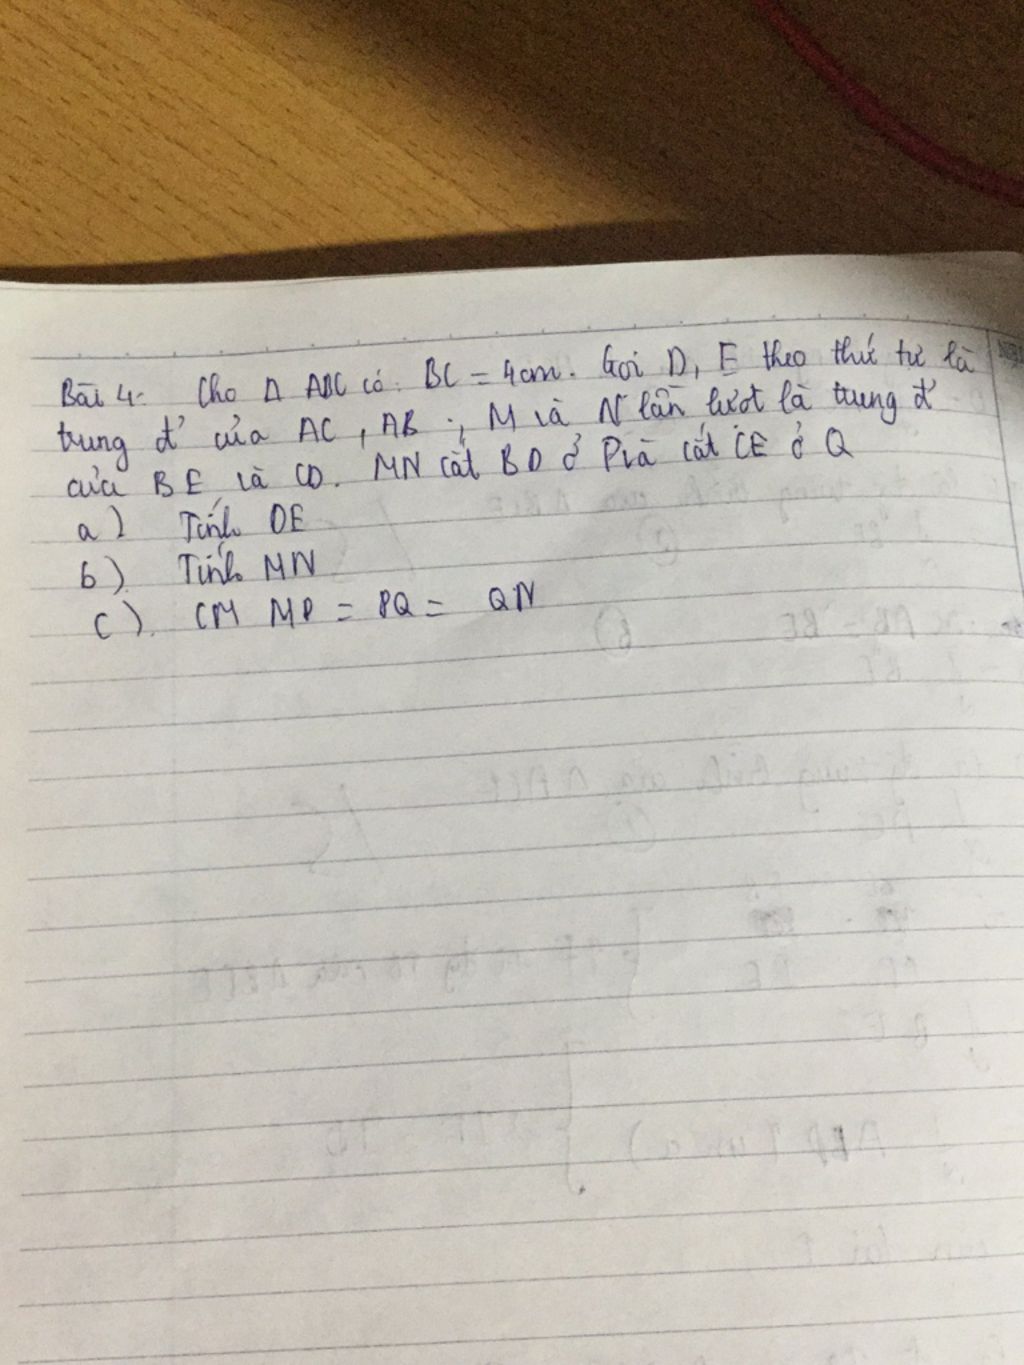 Bài 4: Cho Δ ABC có: BC = 4cm. Gọi D, E theo thứ tự là
trung đ' của AC, AB ; M và N lần lượt là trung đ'
của BE và CD. MN cắt BD ở P và cắt CE ở Q
a) Tính DE
b) Tính MN
c). CM MP = PQ = QN